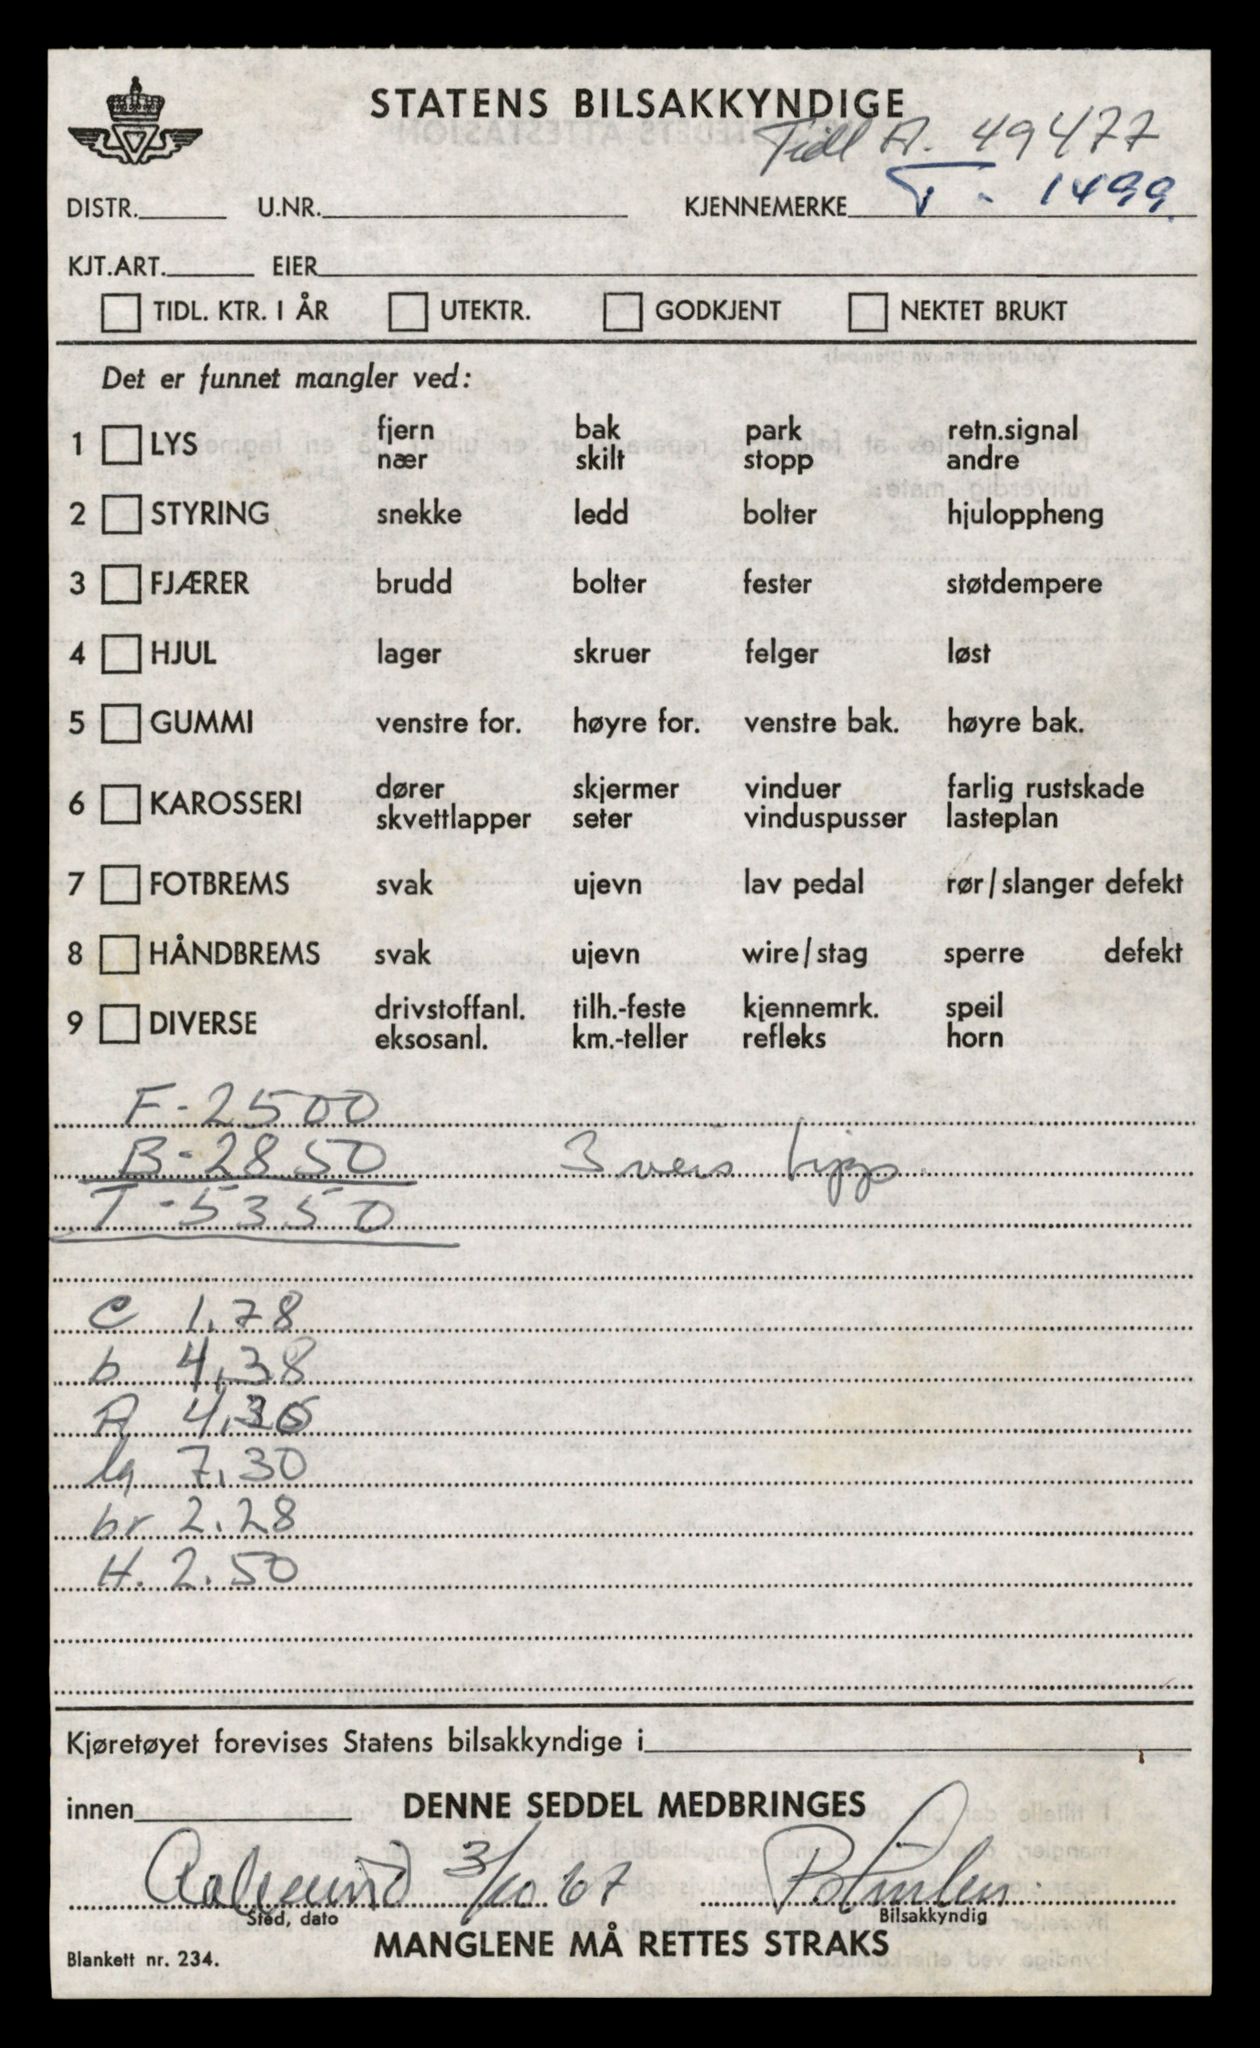 STATENS BILSAKKYNDIGE
Tidl A. 49477
DISTR. U.NR. KJENNEMERKE T - 1499
KJT.ART. EIER
TIDL. KTR. I ÅR UTEKTR. GODKJENT NEKTET BRUKT
Det er funnet mangler ved:
1 LYS fjern bak park retn.signal
nær skilt stopp andre
2 STYRING snekke ledd bolter hjuloppheng
3 FJÆRER brudd bolter fester støtdempere
4 HJUL lager skruer felger løst
5 GUMMI venstre for. høyre for. venstre bak. høyre bak.
6 KAROSSERI dører skjermer vinduer farlig rustskade
skvettlapper seter vinduspusser lasteplan
7 FOTBREMS svak ujevn lav pedal rør/slanger defekt
8 HÅNDBREMS svak ujevn wire/stag sperre defekt
9 DIVERSE drivstoffanl. tilh.-feste kjennemrk. speil
eksosanl. km.-teller refleks horn
F-2500
B-2850 3 veis tipp.
T-5350
C 1.78
b 4,38
A 4,36
lg 7,30
br 2.28
H. 2.50
Kjøretøyet forevises Statens bilsakkyndige i
innen DENNE SEDDEL MEDBRINGES
Aalesund 3/10 67
Sted, dato Bilsakkyndig
MANGLENE MÅ RETTES STRAKS
Blankett nr. 234.